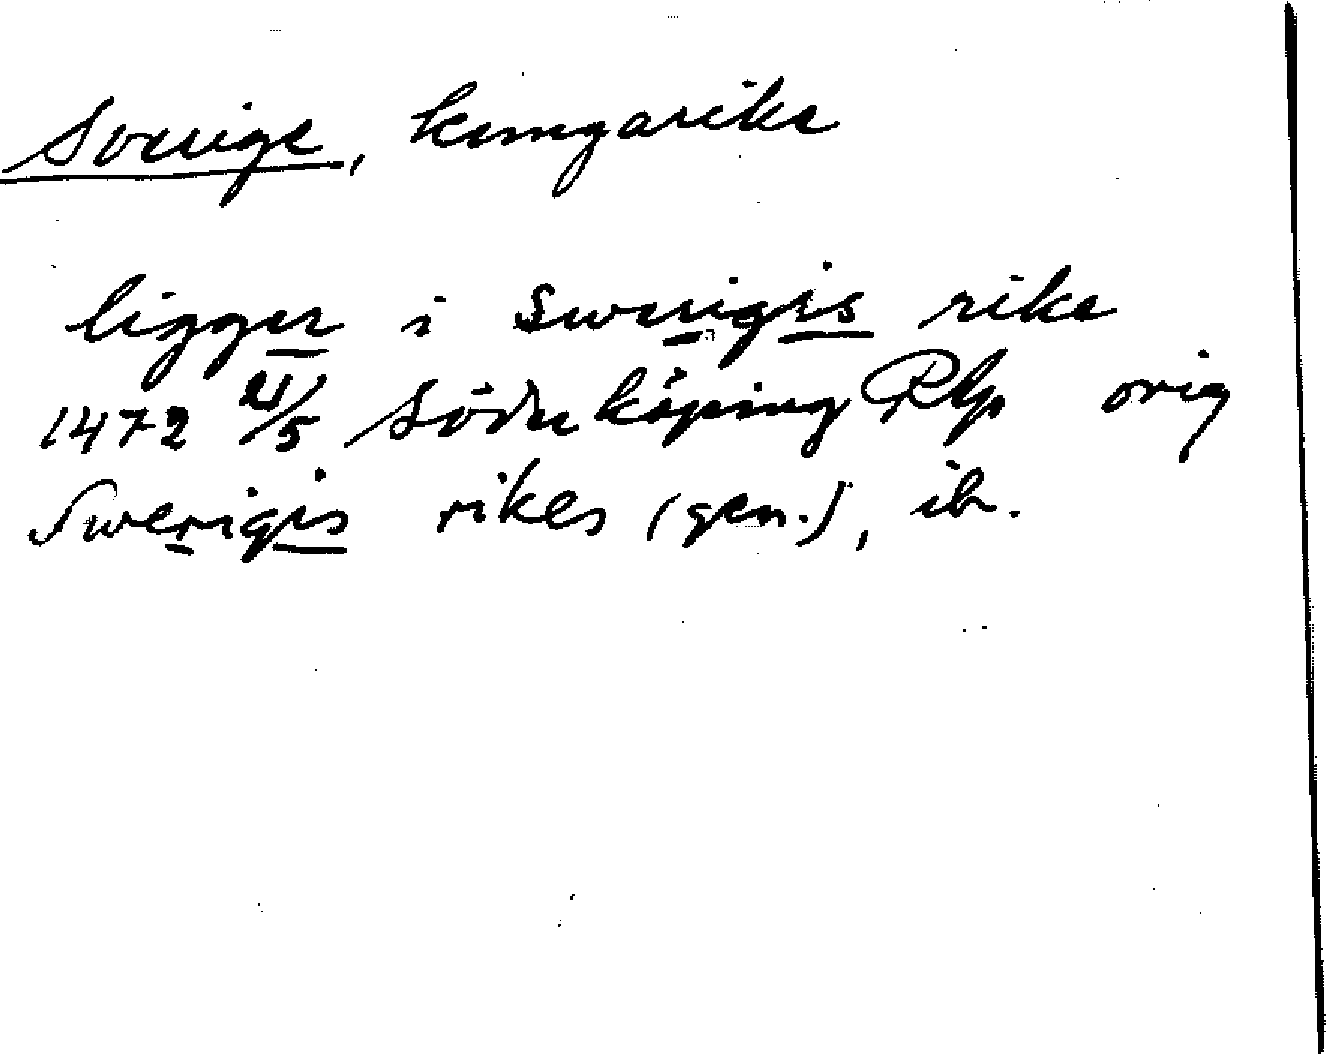 Sverige, kungarike
ligger i Swerigis rike
1472 21/5 Söderköping RAp orig
Swerigis rikes (gen.), ib.